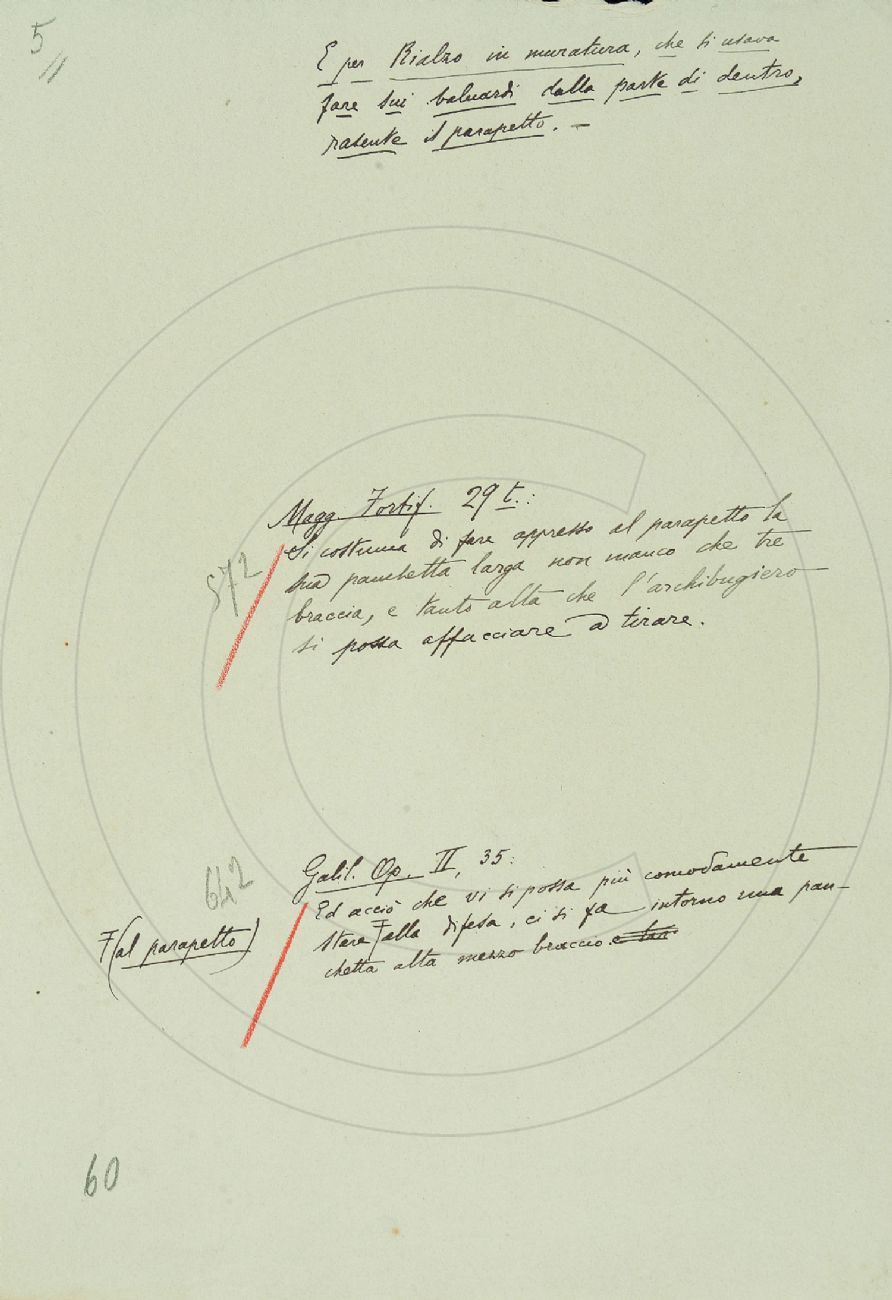 5
E per Rialzo in muratura, che si usava
fare sui baluardi dalla parte di dentro,
rasente il parapetto. –
Magg. Fortif. 29 t.:
Si costuma di fare appresso al parapetto la
sua panchetta larga non manco che tre
572
braccia, e tanto alta che l'archibugiero
si possa affacciare a tirare.
642
Galil. Op. II, 35:
Ed acciò che vi si possa più comodamente
stare F alla difesa, ci si fa intorno una pan-
F (al parapetto)
chetta alta mezzo braccio.
60